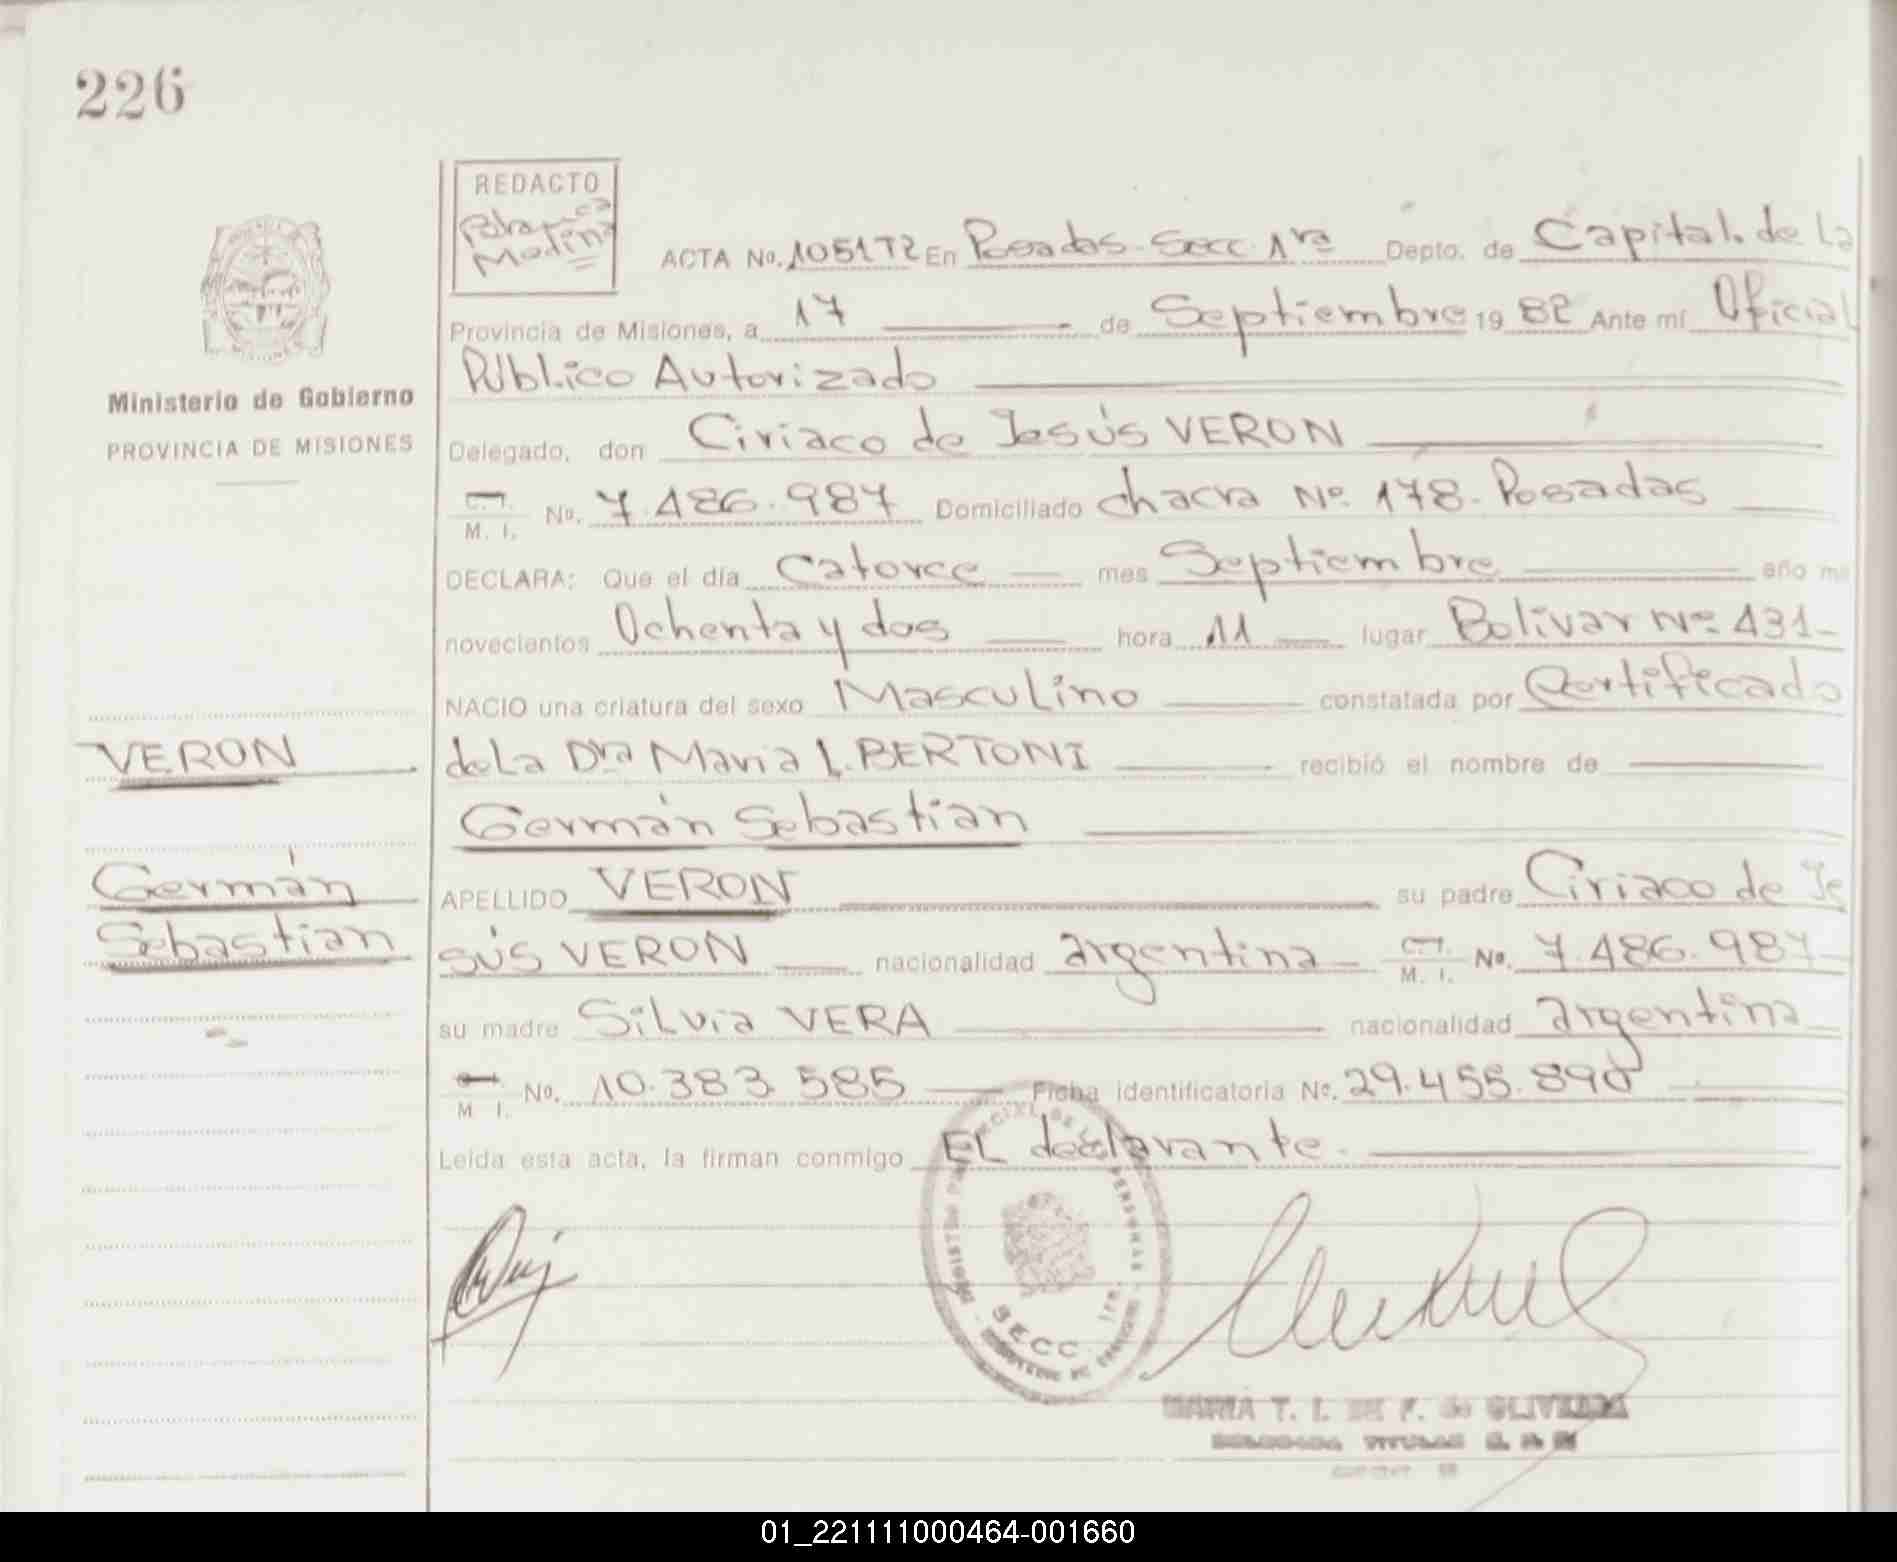 226
REDACTO
Blanca
Molina
ACTA No. 1051T2 En Posadas - Secc 1ra Depto. de Capital. de la
Provincia de Misiones, a 17 de Septiembre 19 82 Ante mí Oficial
Público Autorizado
Delegado, don Ciriaco de Jesús VERON
C.I.
M. I. No. 7.486.987 Domiciliado chacra Nº 178. Posadas
DECLARA: Que el día Catorce mes Septiembre año mil
novecientos Ochenta y dos hora 11 lugar Bolivar Nº 431-
NACIO una criatura del sexo Masculino constatada por Certificado
de la Dra Maria L. BERTONI recibió el nombre de
Germán Sebastian
APELLIDO VERON su padre Ciriaco de Je
sús VERON nacionalidad argentina C.I.
M. I. No. 7.486.987
su madre Silvia VERA nacionalidad argentina
M. I. No. 10.383.585 Ficha identificatoria No. 29.455.890
Leída esta acta, la firman conmigo EL declarante.
Ministerio de Gobierno
PROVINCIA DE MISIONES
VERON
Germán
Sebastian
SECC. 1ra.
MARIA T. I. DE F. de OLIVEIRA
DELEGADA TITULAR
01_221111000464-001660